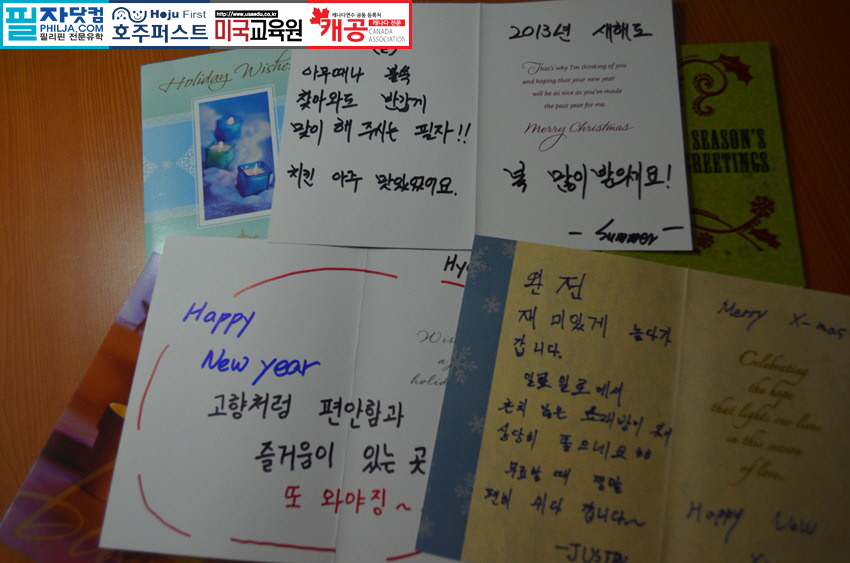 필자닷컴
PHILJA.COM
필리핀 전문유학
Hoju First
호주퍼스트
http://www.usaedu.co.kr
미국교육원
캐나다연수 공동 등록처
캐공 캐나다 전문
CANADA
ASSOCIATION
Holiday Wishes
아무때나 불쑥
찾아와도 반갑게
맞이 해 주시는 필자!!
치킨 아주 맛있었어요.
2013년 새해도
That's why I'm thinking of you
and hoping that your new year
will be as nice as you've made
the past year for me.
Merry Christmas
복 많이 받으세요!
- Summer -
SEASON'S
GREETINGS
Happy
New year
고향처럼 편안함과
즐거움이 있는 곳
또 와야징~
Hyo
완전
재미있게 놀다가
갑니다.
일로일로에서
흔치 않은 노래방이 있어
상당히 좋으네요 ㅎㅎ
무료할 때 정말
편히 쉬다 갑니다~
-JUSTIN
Merry X-mas
Celebrating
the hope
that lights our lives
in this season
of love.
Happy New